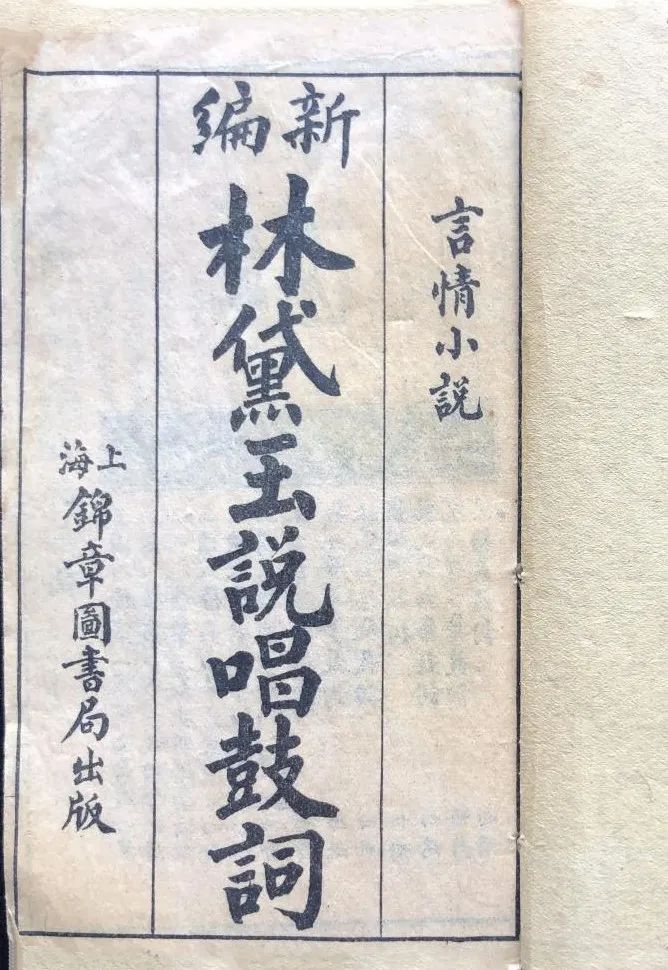 言情小説
新編
林黛玉説唱鼓詞
上海
錦章圖書局出版